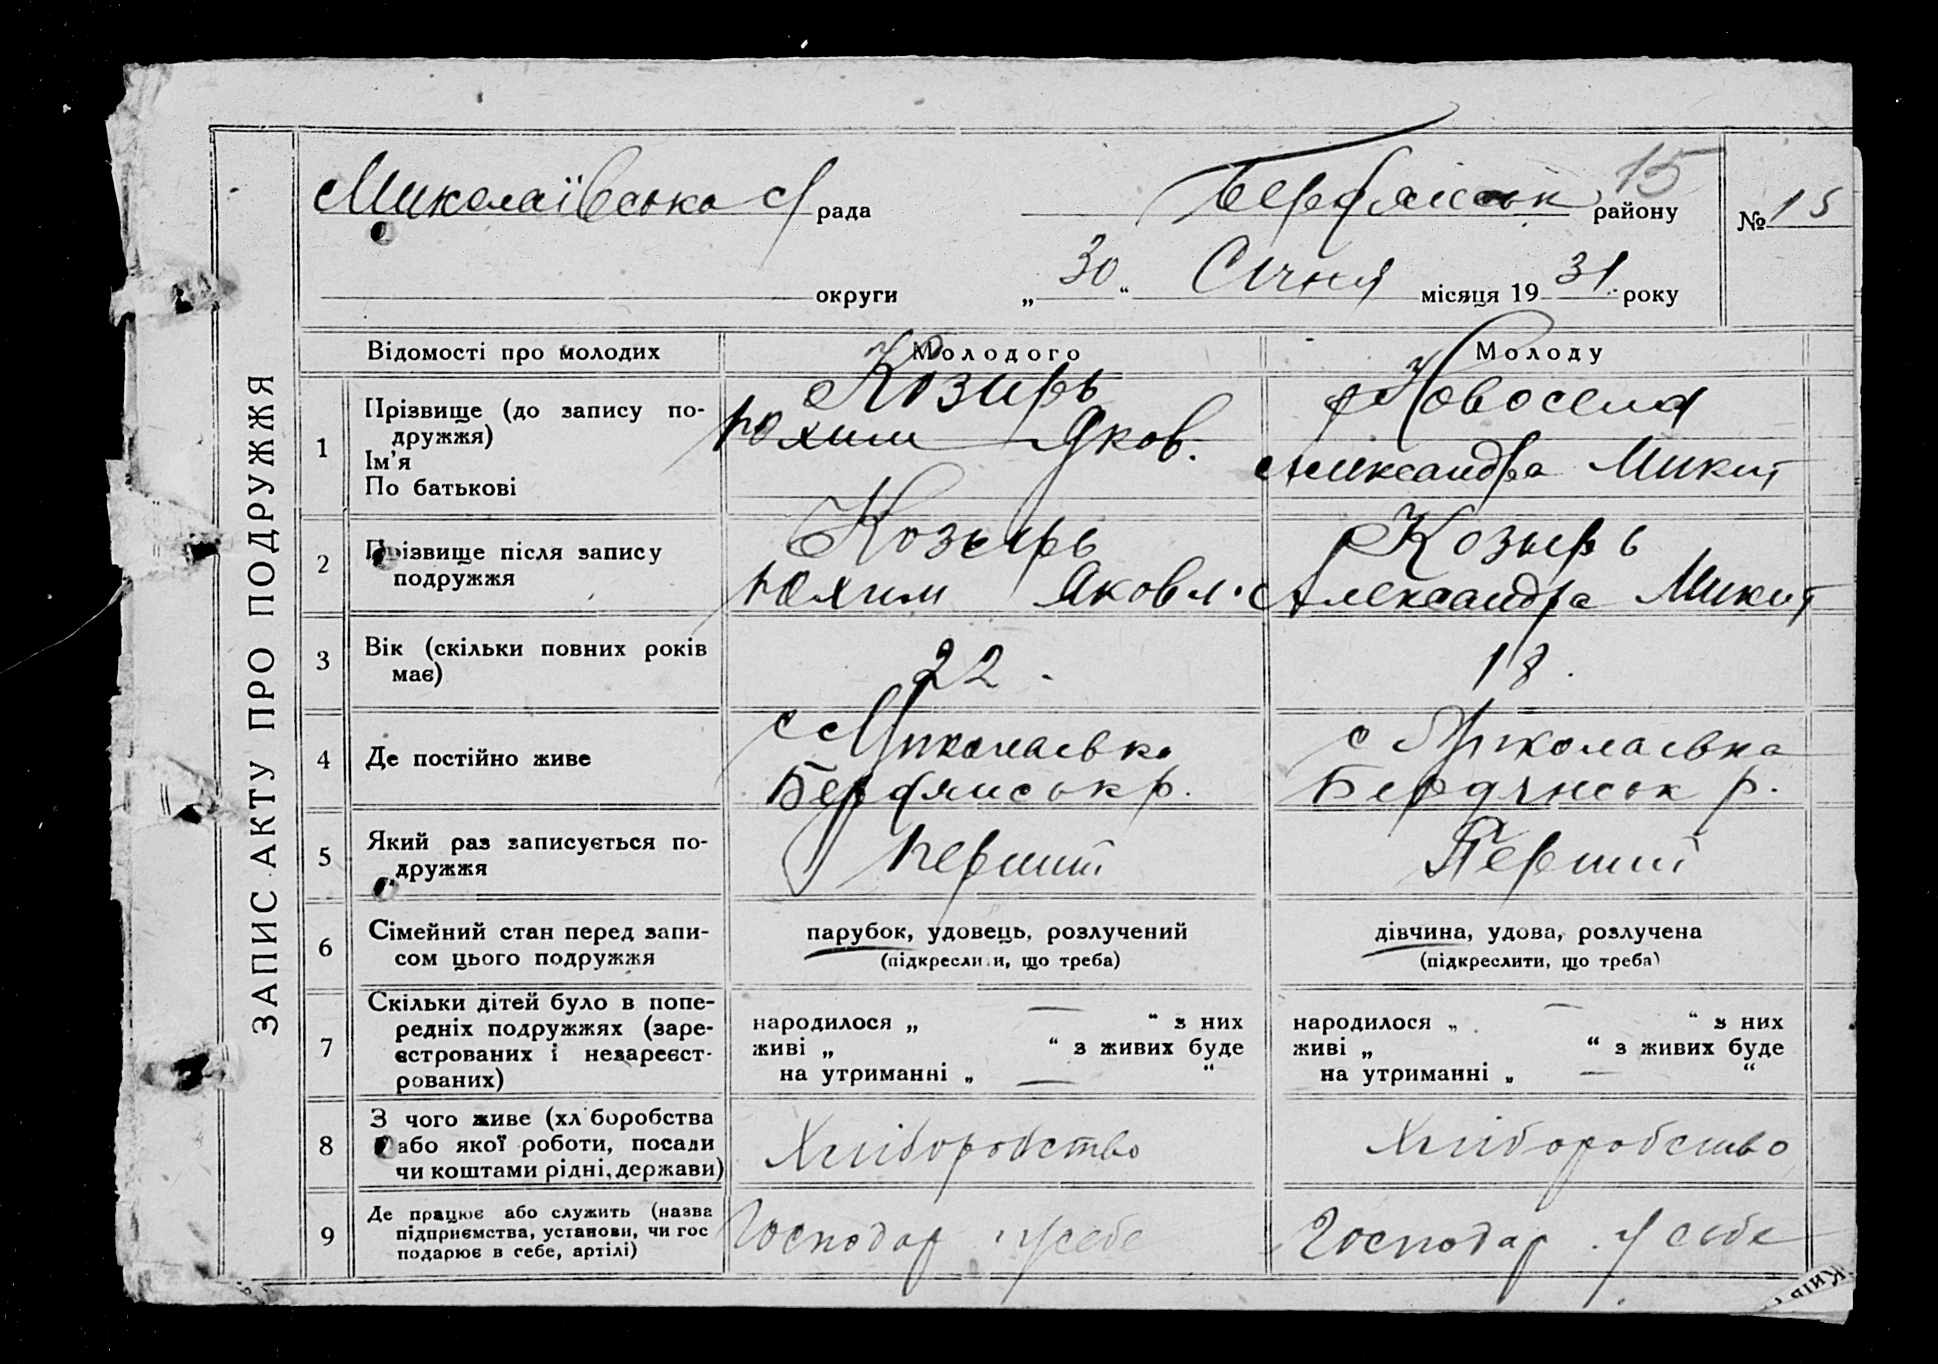 ЗАПИС АКТУ ПРО ПОДРУЖЖЯ
Миколаївська с/рада
Бердянськ району
15
№ 15
округи „30“ Січня місяця 1931 року
Відомості про молодих Молодого Молоду
1 Прізвище (до запису по-
дружжя)
Ім'я
По батькові
Козирь
Юхим Яков.
Новосела
Александра Микит
2 Прізвище після запису
подружжя
Козирь
Юхим Яковл.
Козырь
Александра Микит
3 Вік (скільки повних років
має)
22.
18.
4 Де постійно живе
с Миколаівка
Бердянськ р.
с Миколаівка
Бердянськ р.
5 Який раз записується по-
дружжя
Перший
Перший
6 Сімейний стан перед запи-
сом цього подружжя
парубок, удовець, розлучений
(підкреслити, що треба)
дівчина, удова, розлучена
(підкреслити, що треба)
7 Скільки дітей було в попе-
редніх подружжях (заре-
єстрованих і незареєст-
рованих)
народилося „ — “ з них
живі „ “ з живих буде
на утриманні „ — “
народилося „ — “ з них
живі „ “ з живих буде
на утриманні „ — “
8 З чого живе (хл боробства
або якої роботи, посади
чи коштами рідні, держави)
Хліборобство
Хліборобство
9 Де працює або служить (назва
підприємства, установи, чи гос
подарює в себе, артілі)
Господар у себе
Господар у себе